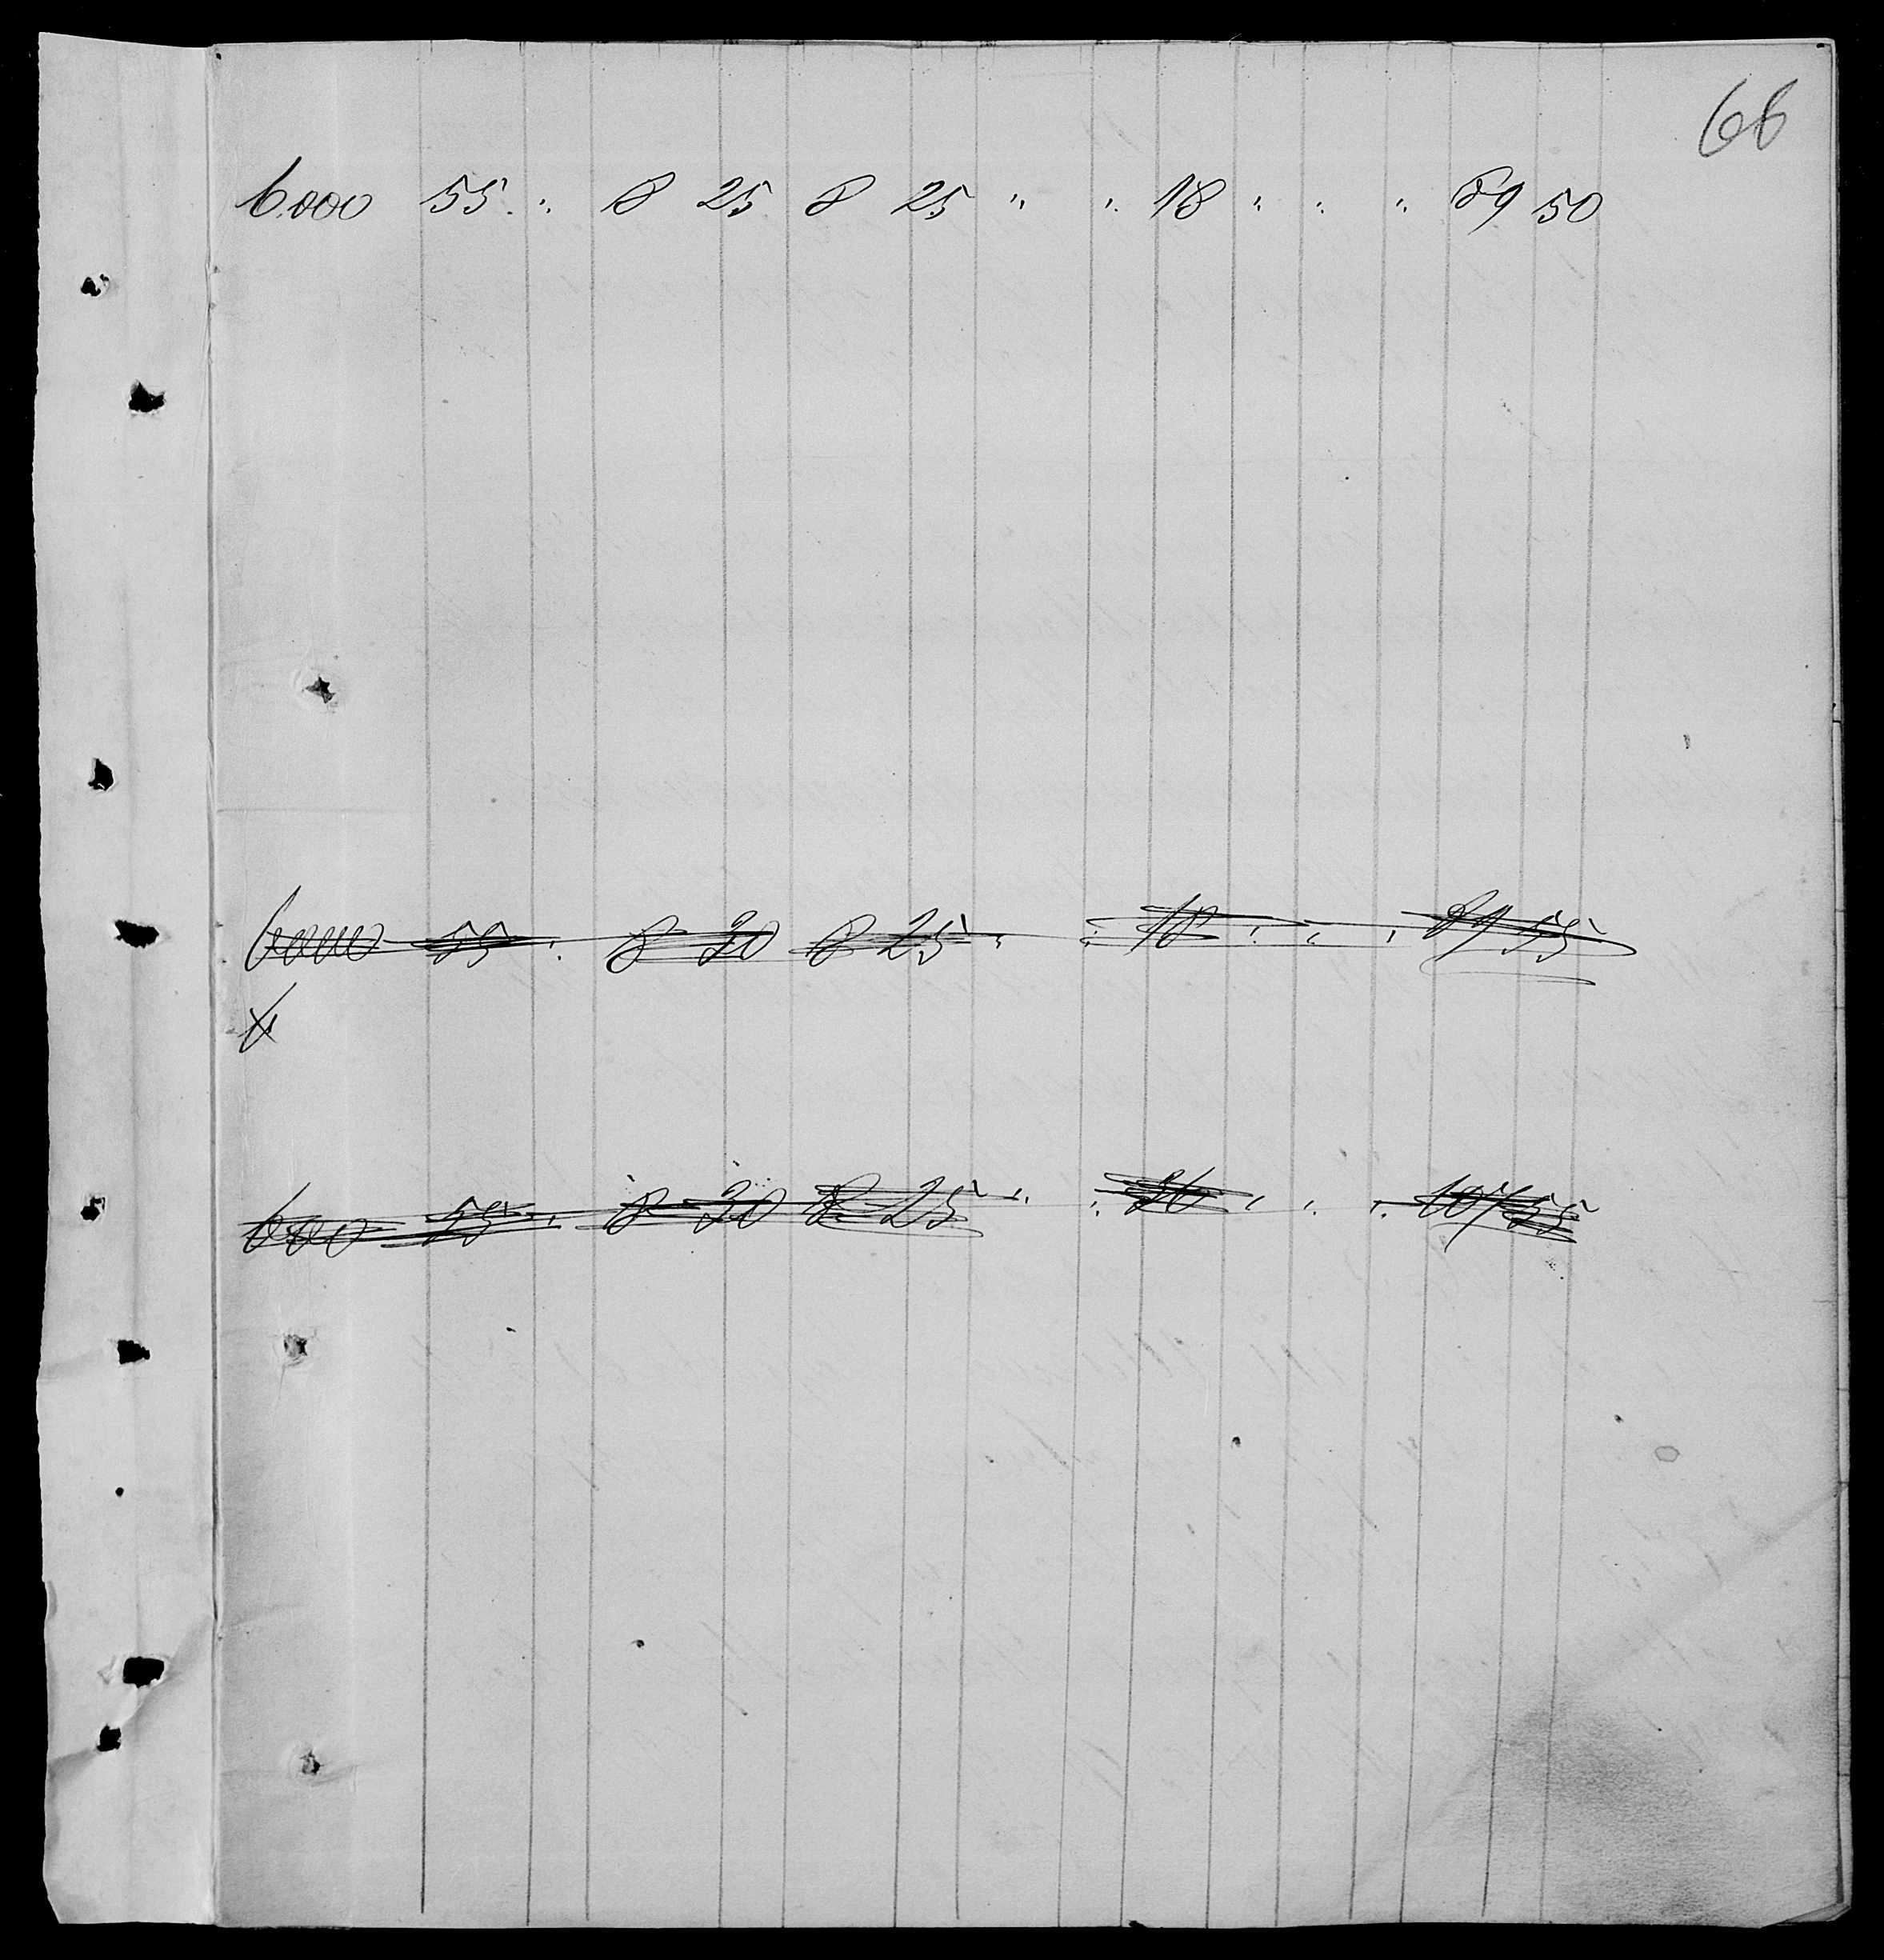 66
6.000 55 " 8 25 8 25 " " 18 " " " 89 50
6000 55 " 8 30 8 25 " " 18 " " " 89 55
6
600 55 " 8 30 8 25 " " 36 " " " 107 55